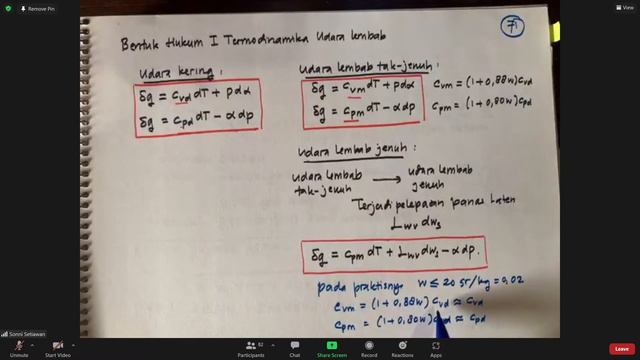 Remove Pin
Unlabel
71
Bentuk Hukum I Termodinamika Udara lembab
Udara kering :
δq = cvd dT + p dα
δq = cpd dT - α dp
Udara lembab tak-jenuh :
δq = cvm dT + p dα
δq = cpm dT - α dp
cvm = (1+0,88w) cvd
cpm = (1+0,80w) cpd
Udara lembab jenuh :
udara lembab tak-jenuh → udara lembab jenuh
Terjadi pelepasan panas laten
Lwv dws
δq = cpm dT + Lwv dws - α dp.
pada praktisnya w ≤ 20 gr/kg = 0,02
cvm = (1+0,88w) cvd ≈ cvd
cpm = (1+0,80w) cpd ≈ cpd
Sonni Setiawan
Unmute
Start Video
Participants
82
Chat
Share Screen
Record
Reactions
Leave